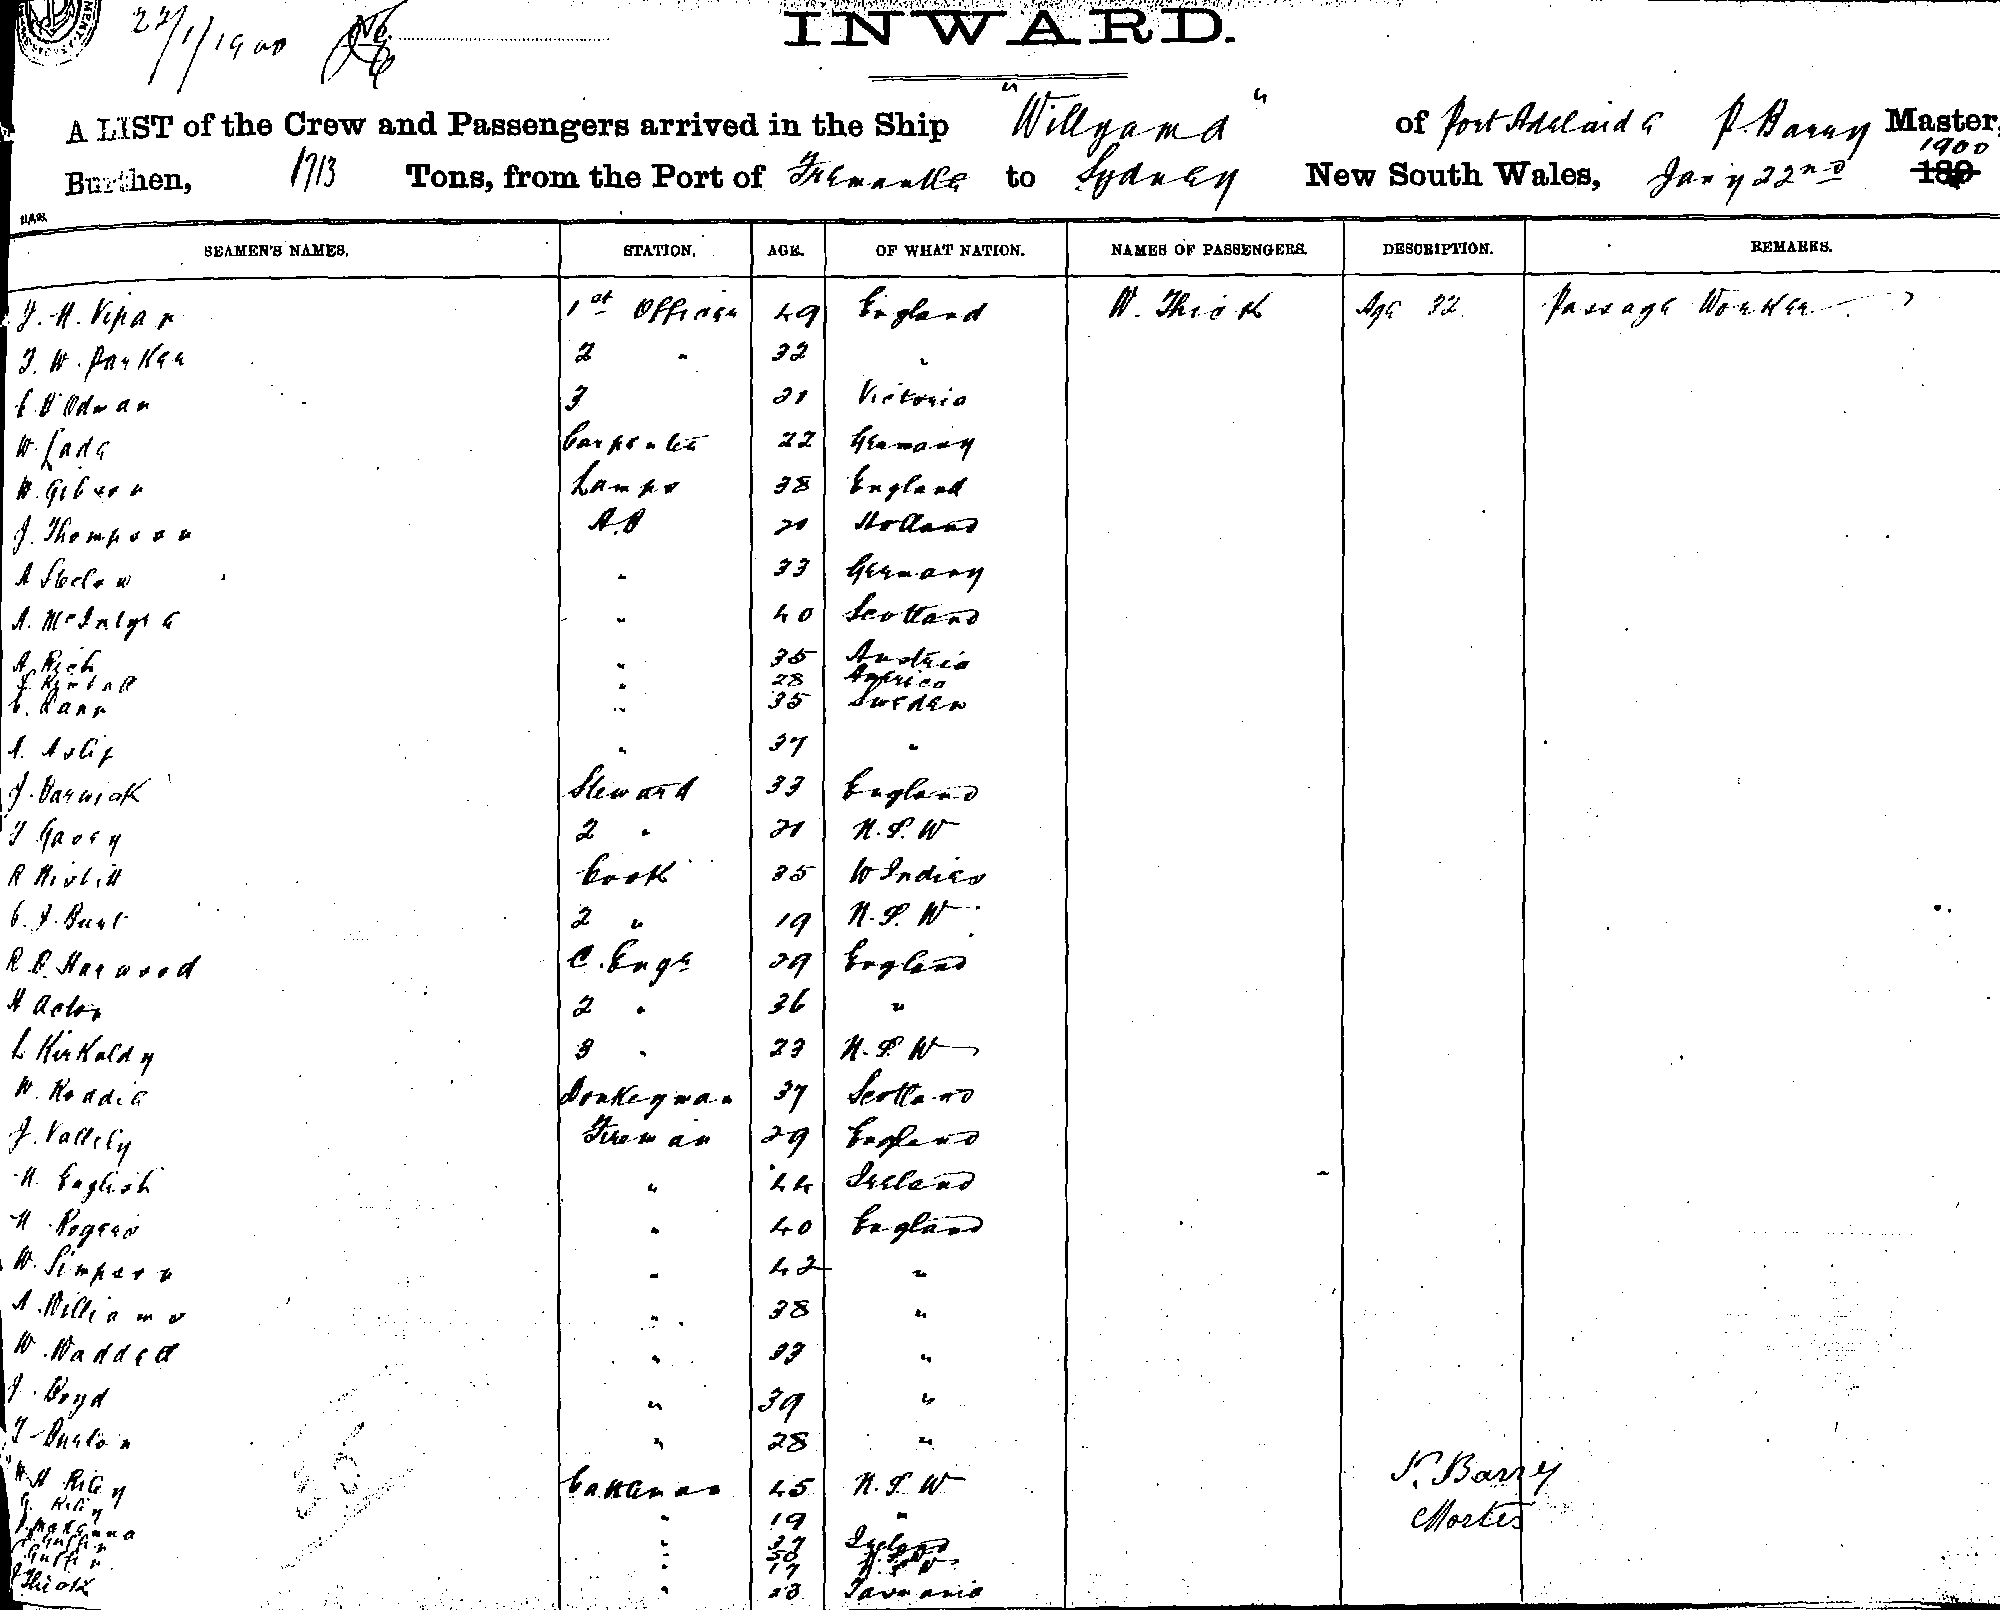 22/1/1900
INWARD.
A LIST of the Crew and Passengers arrived in the Ship "Willyama" of Port Adelaide P Barry Master,
Burthen, 1713 Tons, from the Port of Fremantle to Sydney New South Wales, Jany 22nd 1900 189
SEAMEN'S NAMES. STATION. AGE. OF WHAT NATION. NAMES OF PASSENGERS. DESCRIPTION. REMARKS.
J. H. Vipan 1st Officer 49 England W. Thick Age 32 Passage Worker
J. W. Parker 2 " 32 "
3 21 Victoria
W. Lade Carpenter 22 Germany
W. Gibson Lamps 38 England
J. Thompson A.B 21 Holland
A Stelow " 33 Germany
A. McIntyre " 40 Scotland
A Rich " 35 Austria
J. Kimball " 28 America
" 35 Sweden
A. Aslip " 37 "
J. Barwick Steward 33 England
T Gavey 2 " 21 N.S.W
R Nisbitt Cook 35 W Indies
C. J. Bunt 2 " 19 N.S.W
R. D. Harwood C. Engr 29 England
H Acton 2 " 36 "
L Kirkaldy 3 " 23 N.S.W
W. Roddie Donkeyman 37 Scotland
J. Vallely Fireman 29 England
M. English " 44 Ireland
H Rogers " 40 England
W. Simpson " 42 "
A. Williams " 38 "
W. Waddell " 33 "
J. Boyd " 39 "
T Burton " 28 "
W H Riley Cattleman 45 N.S.W
G. Riley " 19 "
" 37 Ireland
" 50
" 17
Thick " 23 Tasmania
36
P. Barry
Master